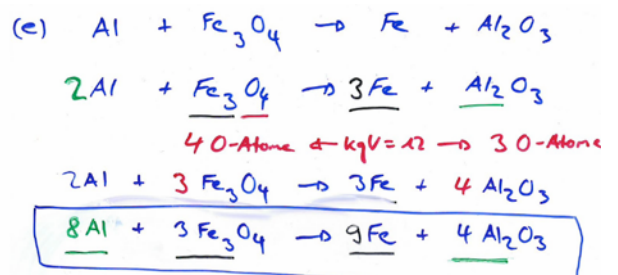 (e) Al + Fe₃O₄ → Fe + Al₂O₃
2Al + Fe₃O₄ → 3Fe + Al₂O₃
4 O-Atome ← kgV = 12 → 3 O-Atome
2Al + 3 Fe₃O₄ → 3Fe + 4 Al₂O₃
8Al + 3 Fe₃O₄ → 9Fe + 4 Al₂O₃